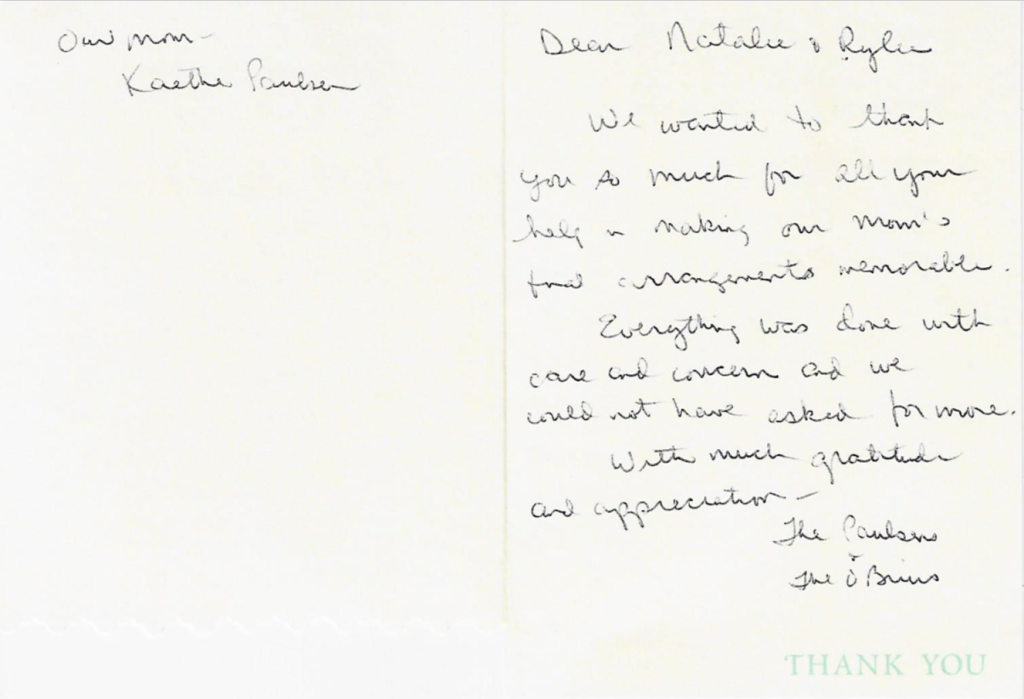 Our mom -
Kaethe Paulsen
Dear Natalie & Rylee
We wanted to thank
you so much for all your
help in making our mom's
final arrangements memorable.
Everything was done with
care and concern and we
could not have asked for more.
With much gratitude
and appreciation -
The Paulsens
&
The O'Briens
THANK YOU